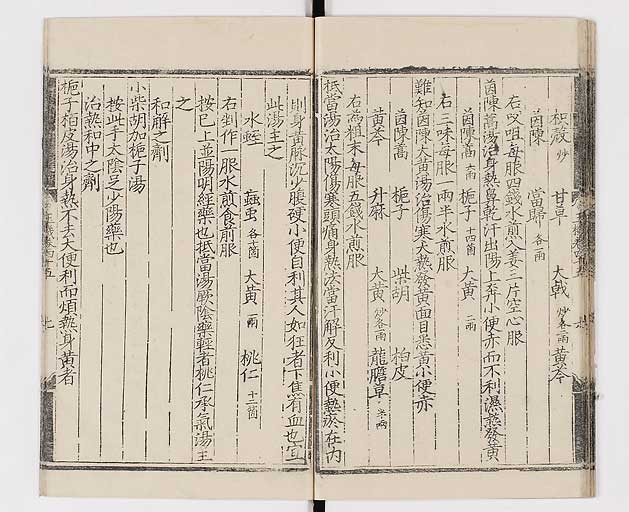 枳殼 炒 甘草 大戟 炒各二兩 黃芩
茵陳 當歸 各一兩
右㕮咀每服四錢水煎入姜三片空心服
茵陳蒿湯治身熱鼻乾汗出陽上奔小便赤而不利濕熱發黃
茵陳蒿 六兩 梔子 十四箇 大黃 二兩
右三味每服一兩半水煎服
難知茵陳大黃湯治傷寒大熱發黃面目悉黃小便赤
茵陳蒿 梔子 柴胡 柏皮
黃芩 升麻 大黃 炒各一兩 龍膽草 半兩
右為粗末每服五錢水煎服
抵當湯治太陽傷寒頭痛身熱法當汗解反利小便熱瘀在內
則身黃脉沉少腹硬小便自利其人如狂者下焦有血也宜
此湯主之
水蛭 蝱虫 各十箇 大黃 一兩 桃仁 十二箇
右剉作一服水煎食前服
按已上並陽明經藥也抵當湯厥陰藥輕者桃仁承氣湯主
之
和解之劑
小柴胡加梔子湯
按此手太陰足少陽藥也
治熱和中之劑
梔子柏皮湯治身熱不去大便利而煩熱身黃者